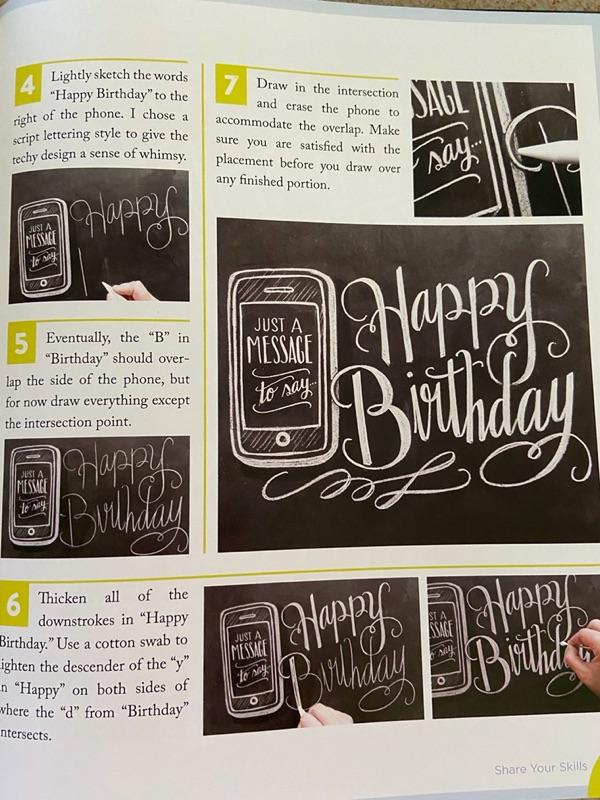 4
Lightly sketch the words
“Happy Birthday” to the
right of the phone. I chose a
script lettering style to give the
techy design a sense of whimsy.
JUST A
MESSAGE
to say...
Happy
5
Eventually, the “B” in
“Birthday” should over-
lap the side of the phone, but
for now draw everything except
the intersection point.
JUST A
MESSAGE
to say...
Happy
Birthday
7
Draw in the intersection
and erase the phone to
accommodate the overlap. Make
sure you are satisfied with the
placement before you draw over
any finished portion.
SAGE
say...
JUST A
MESSAGE
to say...
Happy
Birthday
6
Thicken all of the
downstrokes in “Happy
Birthday.” Use a cotton swab to
ighten the descender of the “y”
n “Happy” on both sides of
where the “d” from “Birthday”
ntersects.
JUST A
MESSAGE
to say...
Happy
Birthday
UST A
SSAGE
say...
Happy
Birthd
Share Your Skills